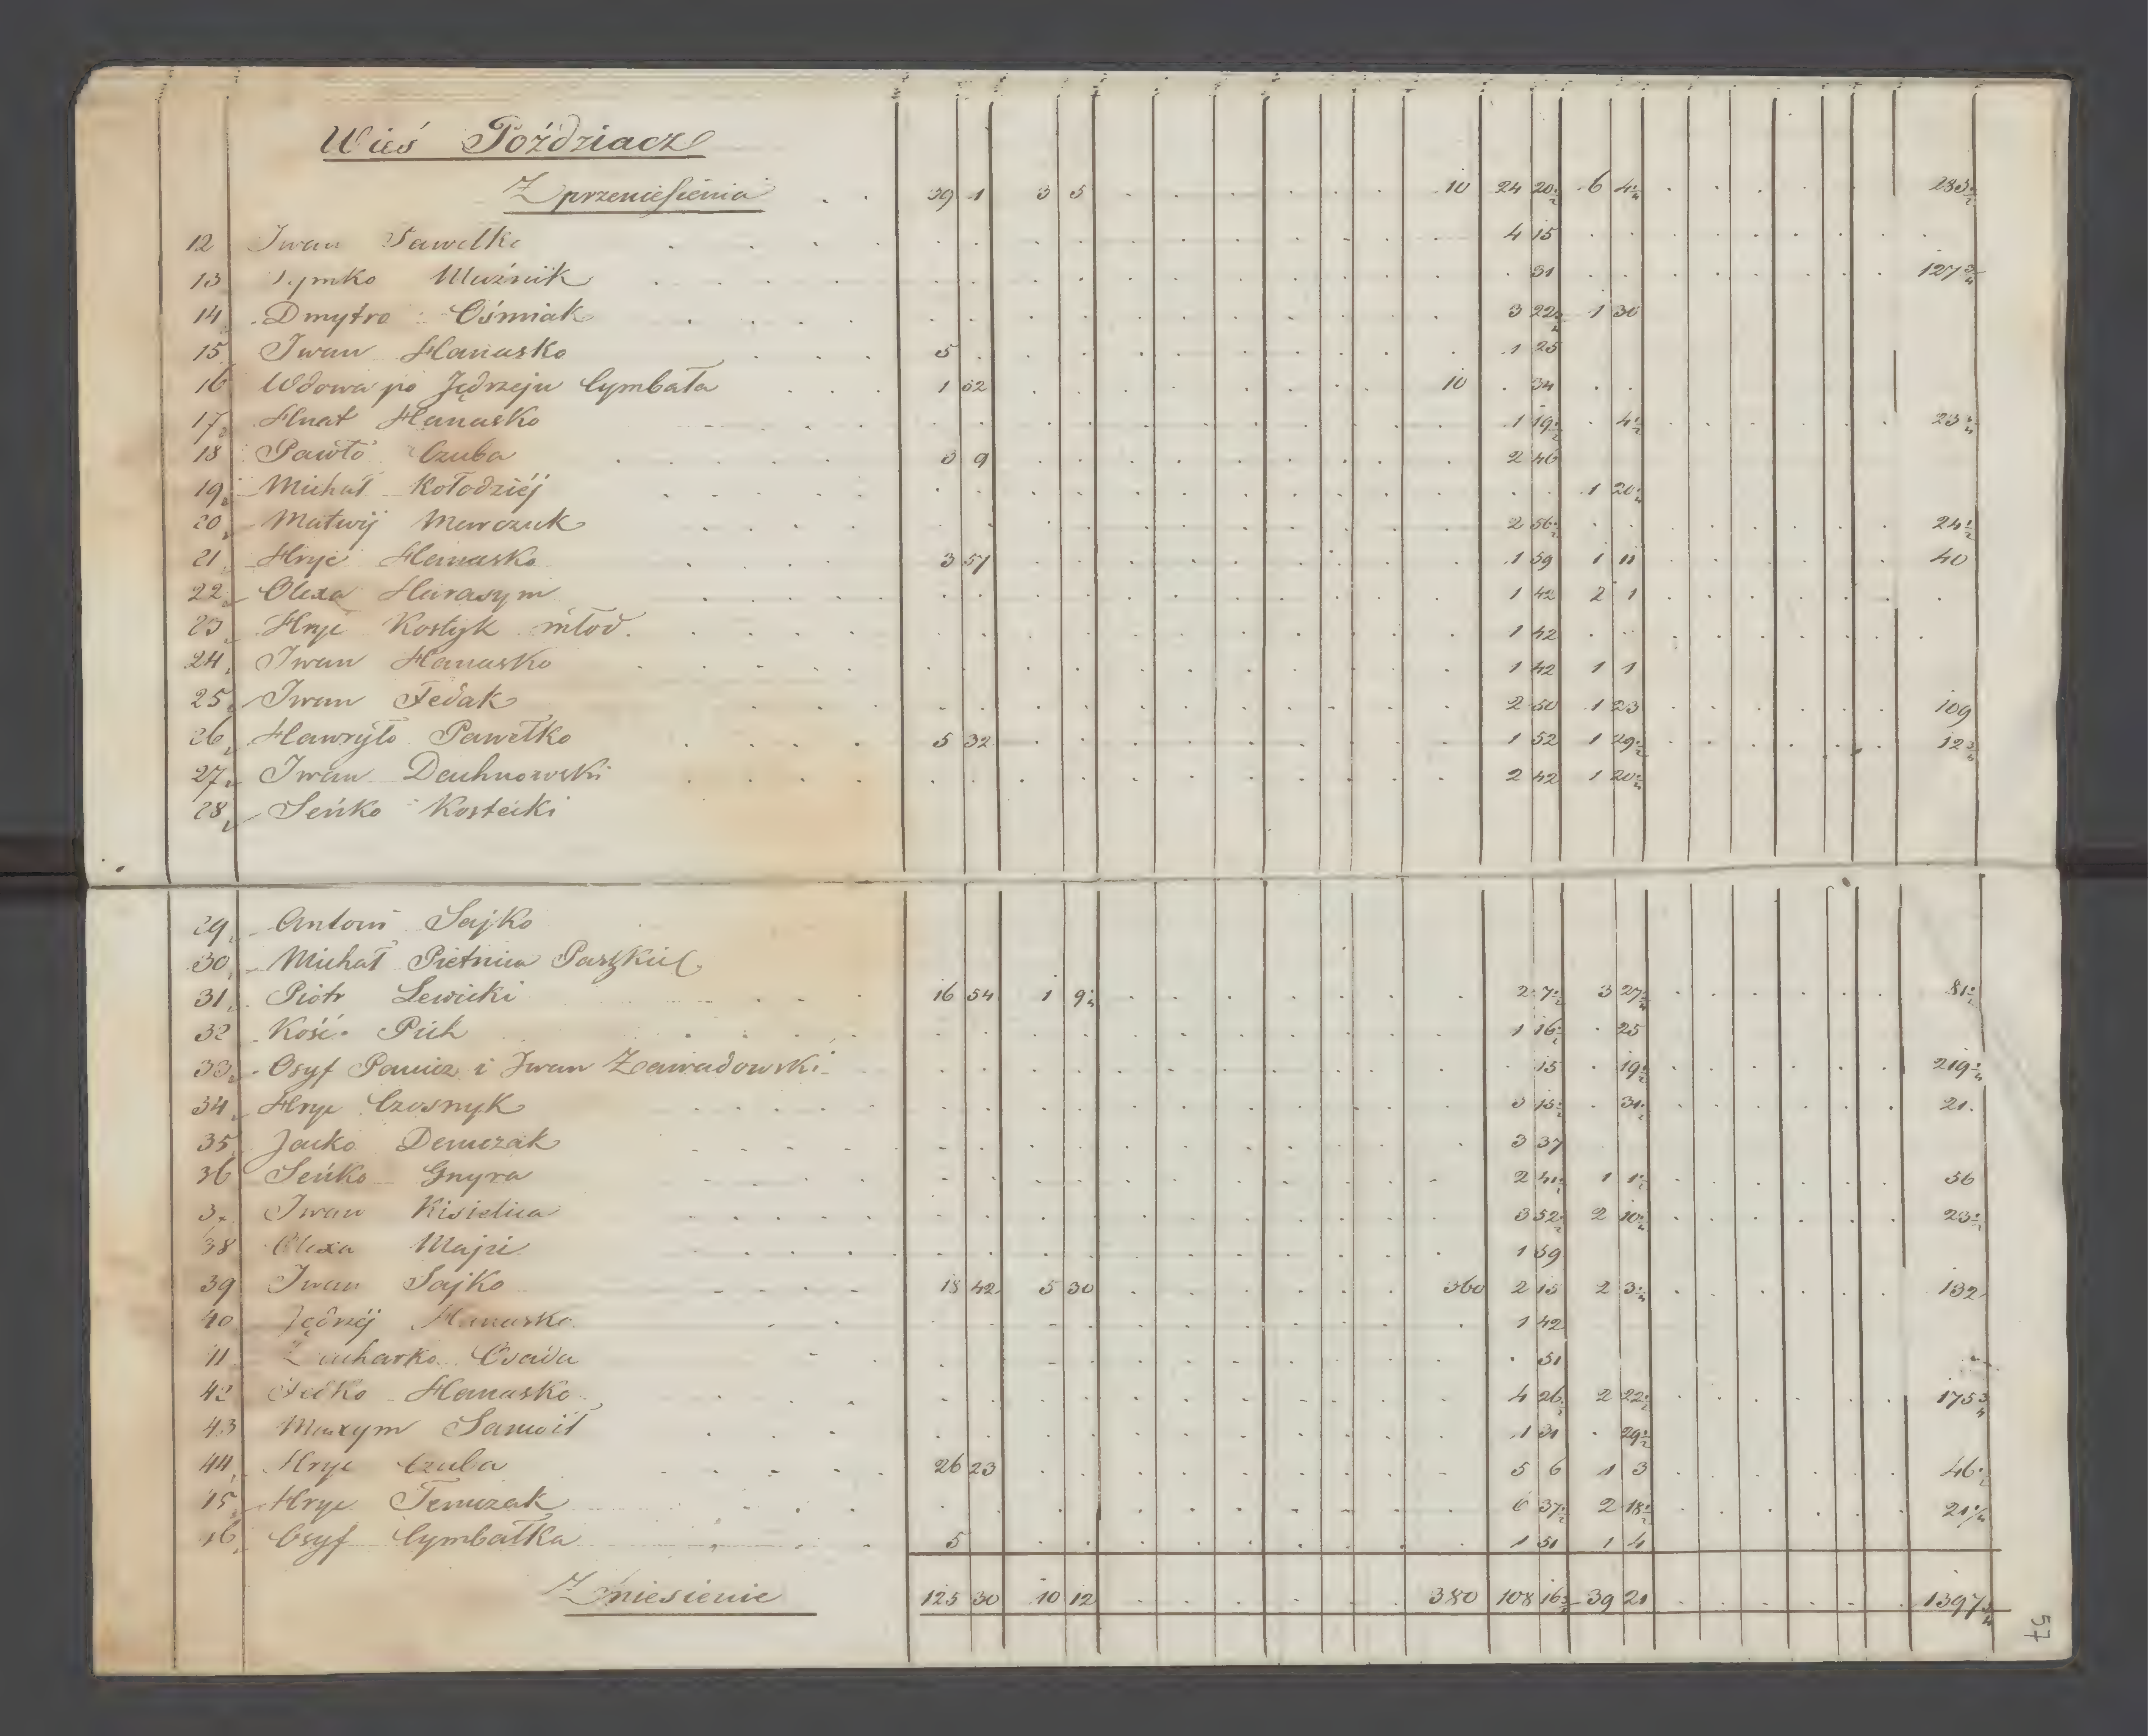 Wieś Poździacz
Z przeniesienia . . 39 1 3 5 10 24 20 1/2 6 4 1/4 283 1/2
12 Iwan Pawełko 4 15
13 Tymko Muźnik 31 127 3/4
14 Dmytro Ośmiak 3 22 1 30
15 Iwan Hanasko 5 1 25
16 Wdowa po Jędrzeju Cymbała 1 52 10 34
17 Hnat Hanasko 1 19 1/2 4 1/2 23
18 Pawło Czuba 3 9 2 46
19 Michał Kołodziéj 1 20
20 Matwij Marczuk 2 56 24 1/2
21 Hryć Hanasko 3 57 1 59 1 11 40
22 Olexa Harasym 1 42 2 1
23 Hryć Kostyk młod. 1 42
24 Iwan Hanasko 1 42 1 1
25 Iwan Fedak 2 50 1 23 109
26 Hawryło Pawełko 5 32 1 52 1 29 1/2 12 3/4
27 Iwan Dachnowski 2 42 1 20
28 Seńko Kostecki
29 Antoni Sajko
30 Michał Pietnica
31 Piotr Lewicki 16 54 1 9 2 7 1/2 3 27 81 1/2
32 Kość Pich 1 16 1/2 25
33 Osyf Panicz i Iwan Zawadowski 15 19 1/2 219
34 Hryć Czosnyk 3 15 1/2 31 21
35 Jacko Demczak 3 37
36 Seńko Gnyra 2 41 1/2 1 1 1/2 56
37 Iwan Kisielica 3 52 1/2 2 10 23 1/2
38 Olexa 1 59
39 Iwan Sajko 18 42 5 30 360 2 15 2 3 132
40 Jędrzéj Hanasko 1 42
41 Zacharko Osada 51
42 Fedko Hanasko 4 26 1/2 2 22 1/2 175 3/4
43 Maxym Samoił 1 31 29 1/2
44 Hryć Czuba 26 23 5 6 1 3 46 1/2
45 Hryć Temczak 6 37 1/2 2 18 1/2 21 1/4
46 Osyf Cymbałka 5 1 51 1 4
Zniesienie 125 30 10 12 380 108 16 39 21 1397 3/4
57